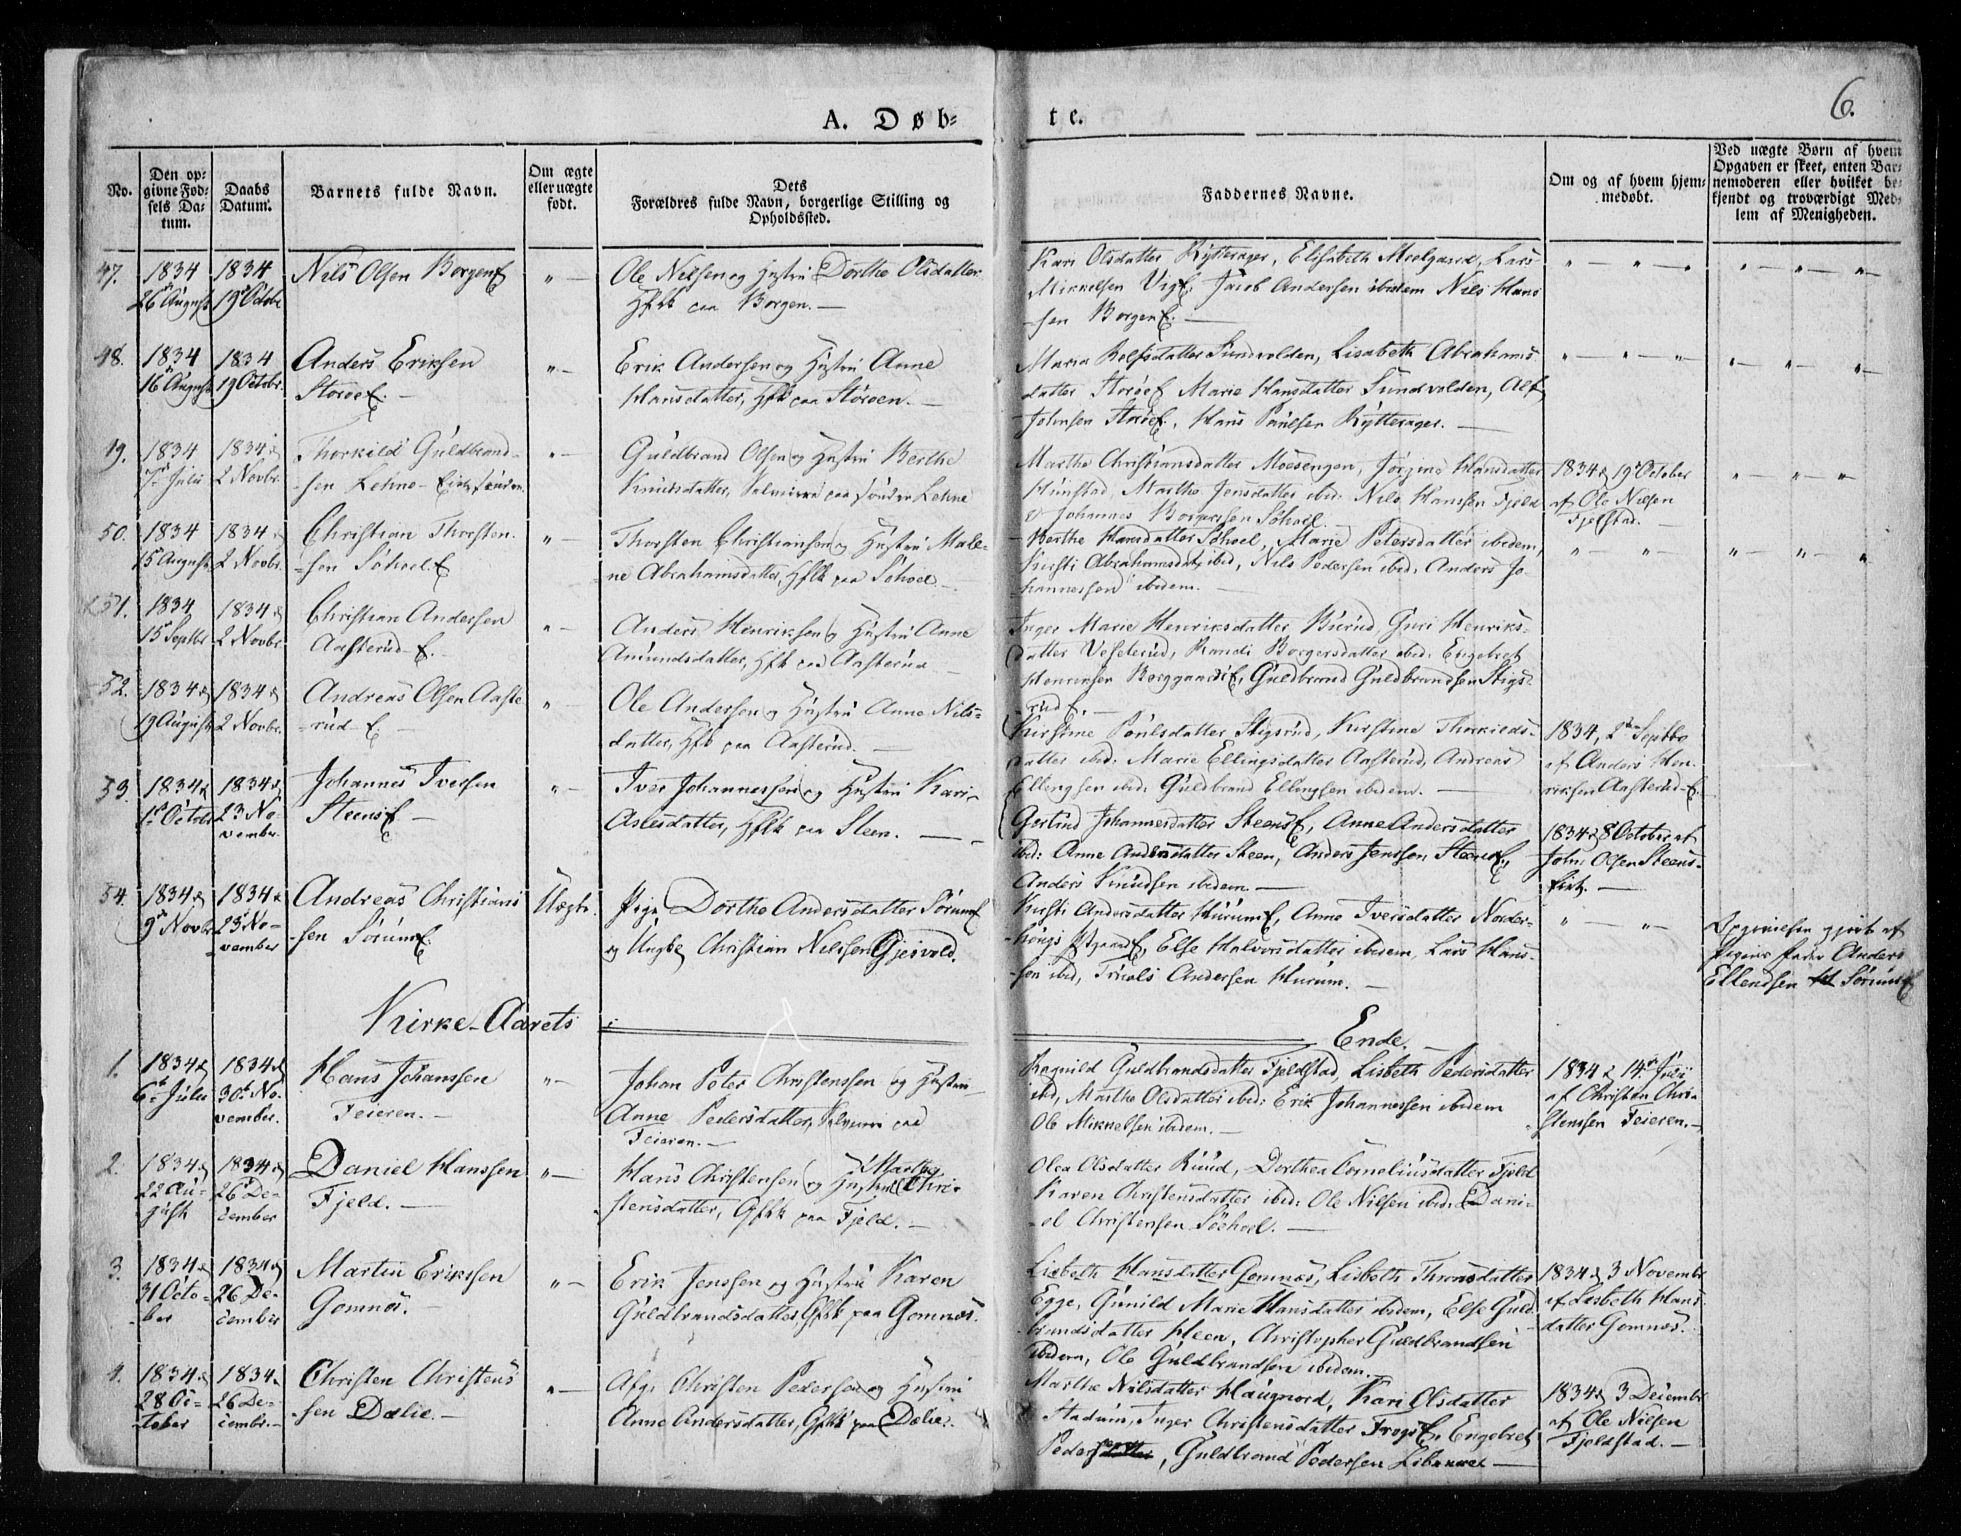 6.
A. Døb-
te.
No.
Den op-
givne Fød-
sels Da-
tum.
Daabs
Datum.
Barnets fulde Navn.
Om ægte
eller uægte
født.
Dets
Forældres fulde Navn, borgerlige Stilling og
Opholdssted.
Faddernes Navne.
Om og af hvem hjem-
medøbt.
Ved uægte Børn af hvem
Opgaven er skeet, enten Bar-
nemoderen eller hvilket be-
kjendt og troværdigt Med-
lem af Menigheden.
47.
1834
26 August
1834
19 Octobr
Nils Olsen Borgen
Ole Nilsen og Hustru Dorthe Olsdatter
Hflk paa Borgen.
Kari Olsdatter Rytterager, Elisabeth Moelgaard, Lars
Mikkelsen Vig. Jacob Andersen ibidem Nils Hans
sen Borgen
48.
1834
16 August
1834
19 Octobr.
Anders Eriksen
Storøe
Erik Andersen og Hustru Anne
Hansdatter, Hflk paa Storøen.
Maria Rolfsdatter Sundvolden, Lisabeth Abrahams
datter Storøe Marie Hansdatter Sundvolden, Alf
Johnsen Storøe, Hans Paulsen Rytterager.
49.
1834
7 Julii
1834
2 Novbr.
Thorkild Guldbrand-
sen Lehne
Guldbrand Olsen og Hustru Berthe
Knudsdatter, paa søndre Lehne
Marthe Christiansdatter Moesengen, Jørgine Hansdatter
Hunstad, Marthe Jensdatter ibid: Nils Hanssen Fjeld
Johannes Borgersen Søhoel.
1834 19 October
af Ole Nilsen
Fjelstad.
50.
1834
15 August
1834
2 Novbr.
Christian Thorsten-
sen Søhoel
Thorsten Christiansen og Hustru Male-
ne Abrahamsdatter, Hflk paa Søhoel.
Berthe Hansdatter Søhoel, Marie Petersdatter ibidem,
Kirsti Abrahamsdat ibid, Nils Pedersen ibid. Anders Jo-
hannessen ibidem.
51.
1834
15 Septbr
1834
2 Novbr.
Christian Andersen
Aasterud
Anders Henriksen og Hustru Anne
Amundsdatter, Hflk paa Aasterud
Inger Marie Henriksdatter Burud Guri Henriks-
datter Veseterud, Randi Borgersdatter ibid: Engebret
Henriksen Borggaard, Guldbrand Guldbrandsen Stigs-
rud.
52.
1834
19 August
1834
2 Novbr.
Andreas Olsen Aaste
rud
Ole Andersen og Hustru Anne Nils-
datter, Hflk paa Aasterud.
Kirstine Poulsdatter Stigsrud, Kirstine Thorkilds-
datter ibid: Marie Ellingsdatter Aasterud, Andreas
Ellingsen ibid: Guldbrand Ellingsen ibidem.
1834, 2 Septbr
af Anders Hen-
riksen Aasterud
53.
1834
1 Octobr
1834
23 No-
vember.
Johannes Iversen
Steens
Iver Johannessen og Hustru Kari
Aslesdatter, Hflk paa Steen.
Gertrud Johannesdatter Steens, Anne Andersdatter
ibid: Anne Andersdatter Steen, Anders Jenssen Steens,
Anders Knudsen ibidem.
1834 8 October af
John Olsen Steens-
54.
1834
9 Novbr
1834
23 No-
vember
Andreas Christians
sen Sørum
Uægte.
Pige Dorthe Andersdatter Sørum
og Ungk Christian Nilssen Gjesvold.
Kirsti Andersdatter Hurum, Anne Iversdatter Norder-
hougs Else Halvorsdatter ibidem, Lars Hans-
sen ibid, Truels Andersen Hurum.
gjort af
Pigens Fader Anders
Ellendsen Sørum
Kirke-Aarets
Ende.
1.
1834
6 Julii
1834
30 No-
vember.
Hans Johanssen
Feieren.
Johan Peter Christenssen og Hustru
Anne Pedersdatter, paa
Feieren.
Ragnild Guldbrandsdatter Fjeldstad, Lisbeth Pedersdatter
ibid, Marthe Olsdatter ibid: Erik Johannessen ibidem
Ole Mikkelsen ibidem.
1834 14 Julii
af Christen Chri-
stenssen Feieren.
2.
1834
22 Au-
gust
1834
26 De-
cember
Daniel Hanssen
Fjeld.
Hans Christensen og Hustru Marthe Chri-
stensdatter, Gflk paa Fjeld.
Olea Olsdatter Ruud, Dorthea Corneliusdatter Fjeld
Karen Christensdatter ibid: Ole Nilsen ibid: Dani-
el Christensen Søehoel.
3.
1834
31 Octo-
ber
1834
26 De-
cember
Martin Erikssen
Gomnæs.
Erik Jenssen og Hustru Karen
Guldbrandsdatter, Gflk paa Gomnæs.
Lisbeth Hansdatter Gomnæs, Lisbeth Thronsdatter
Egge, Gunild Marie Hansdatter ibidem, Else Guld-
brandsdatter Heen, Christopher Guldbrandsen
ibidem, Ole Guldbrandsen ibidem.
1834 3 Novembr
af Lisbeth Hans-
datter Gomnæs.
4.
1834
28 Oc-
tober
1834
26 De-
cembr.
Christen Christens
sen Dælie
Afg. Christen Pedersen og Hustru
Anne Andersdatter, Gflk paa Dælie.
Marthe Nilsdatter Haugnord, Kari Olsdatter
Stadum, Inger Christensdatter Frogs, Engebret
Pedersen, Guldbrand Pedersen
1834 3 Decembr
af Ole Nilsen
Fjeldstad.